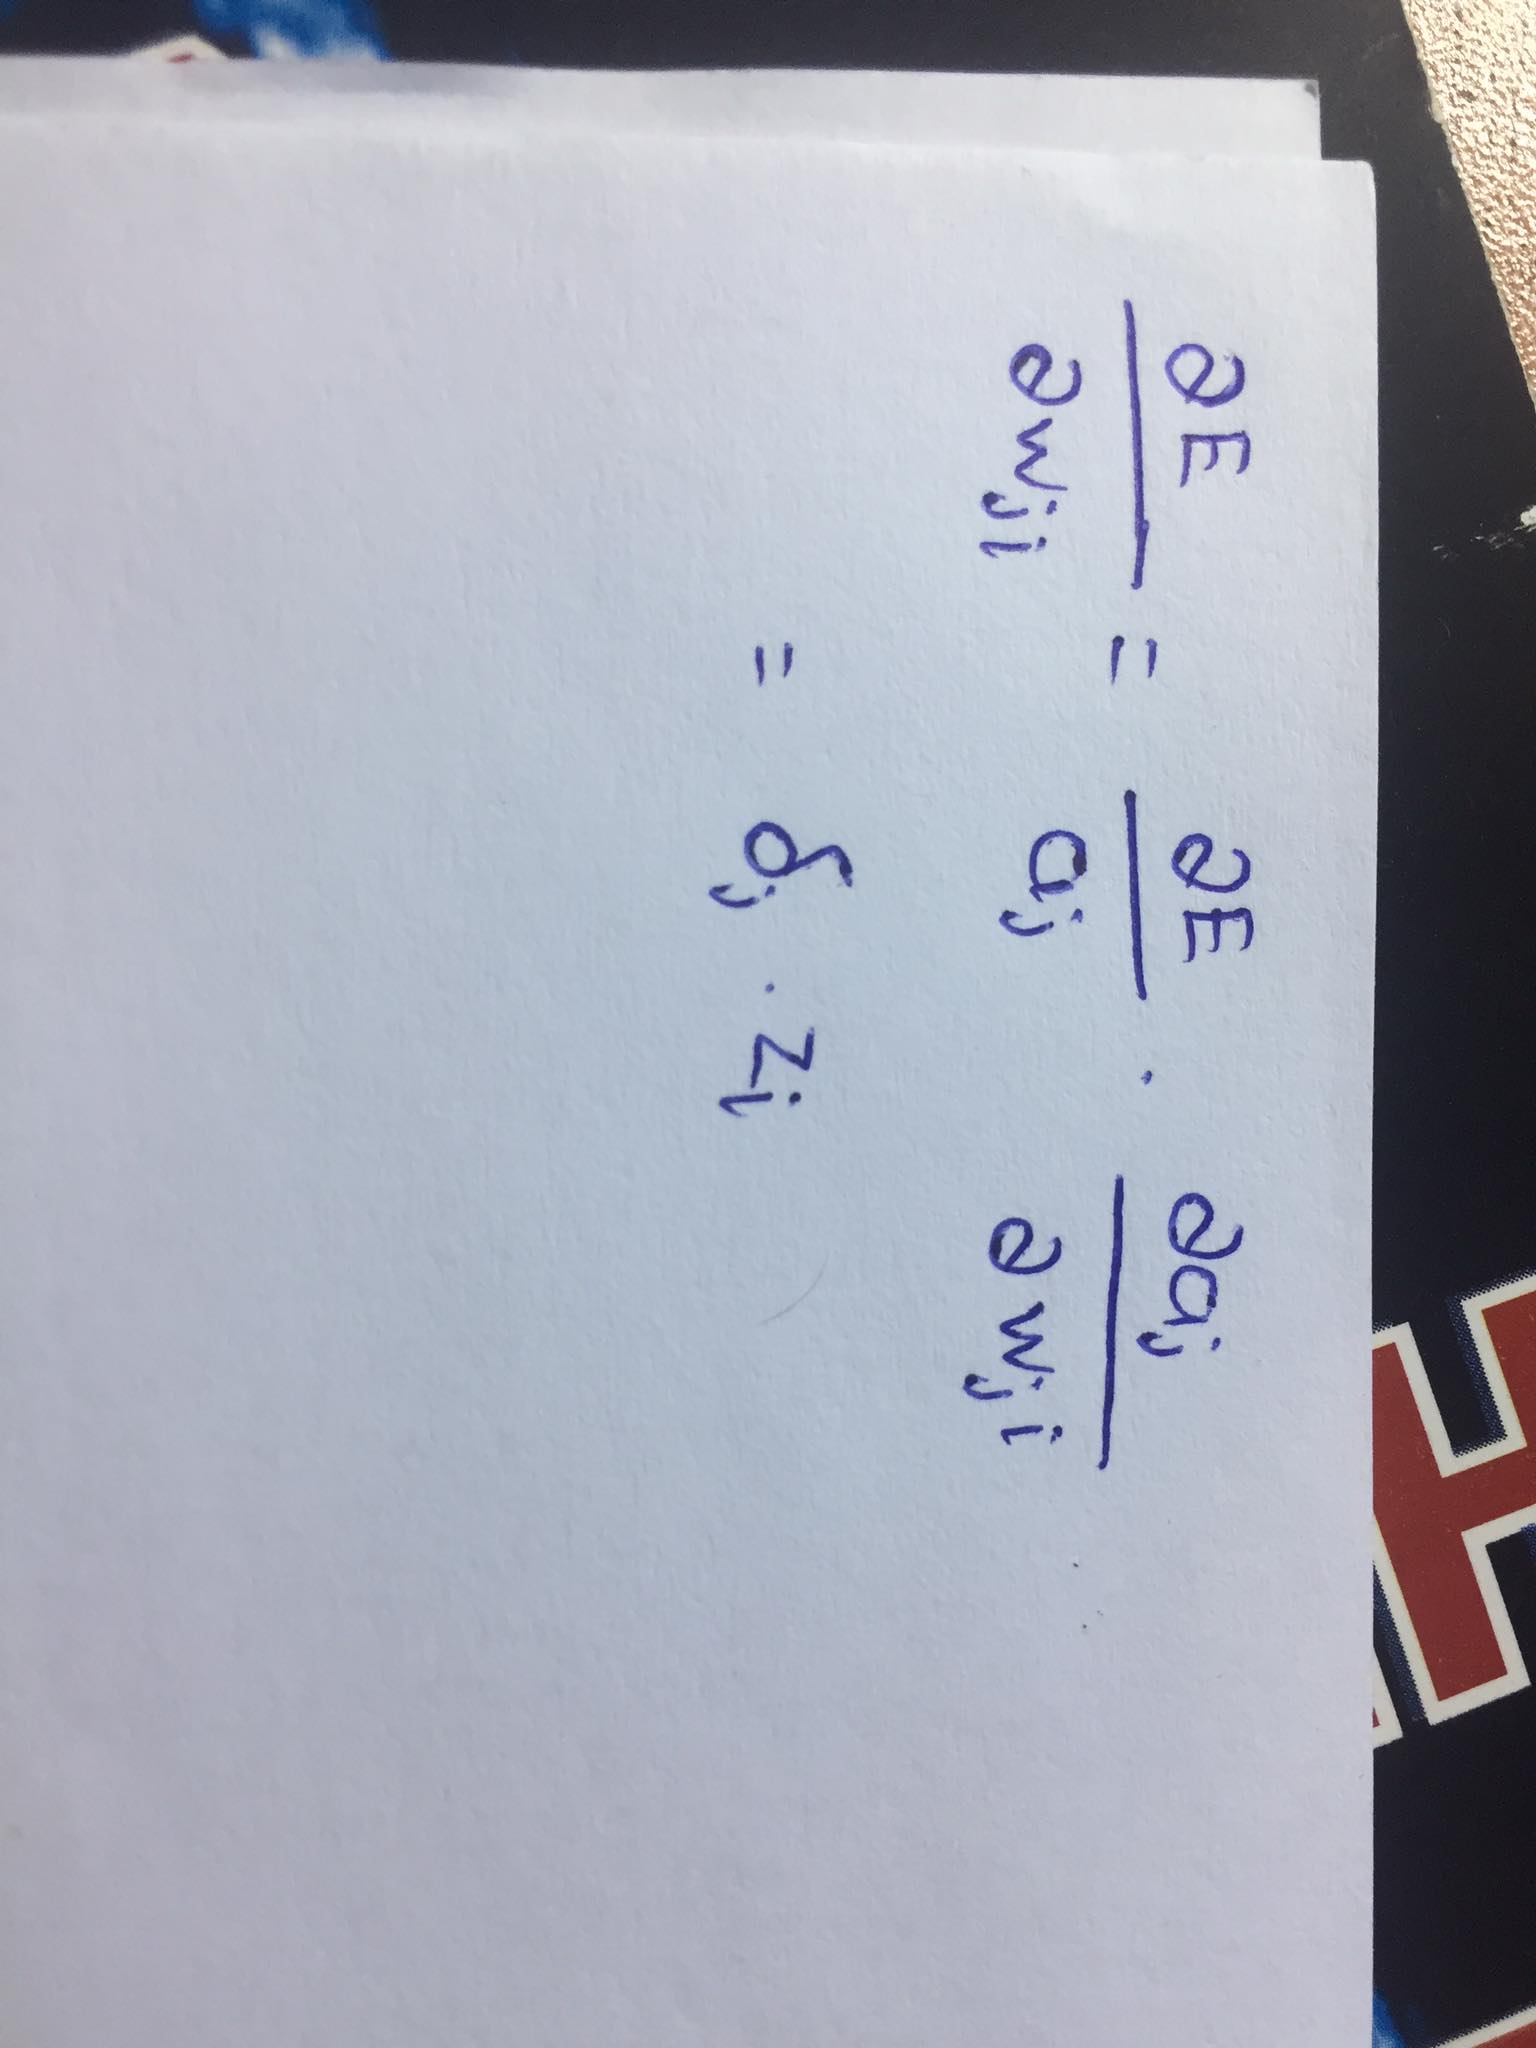 ∂E/∂wji = ∂E/aj · ∂aj/∂wji
= δj · zi
H